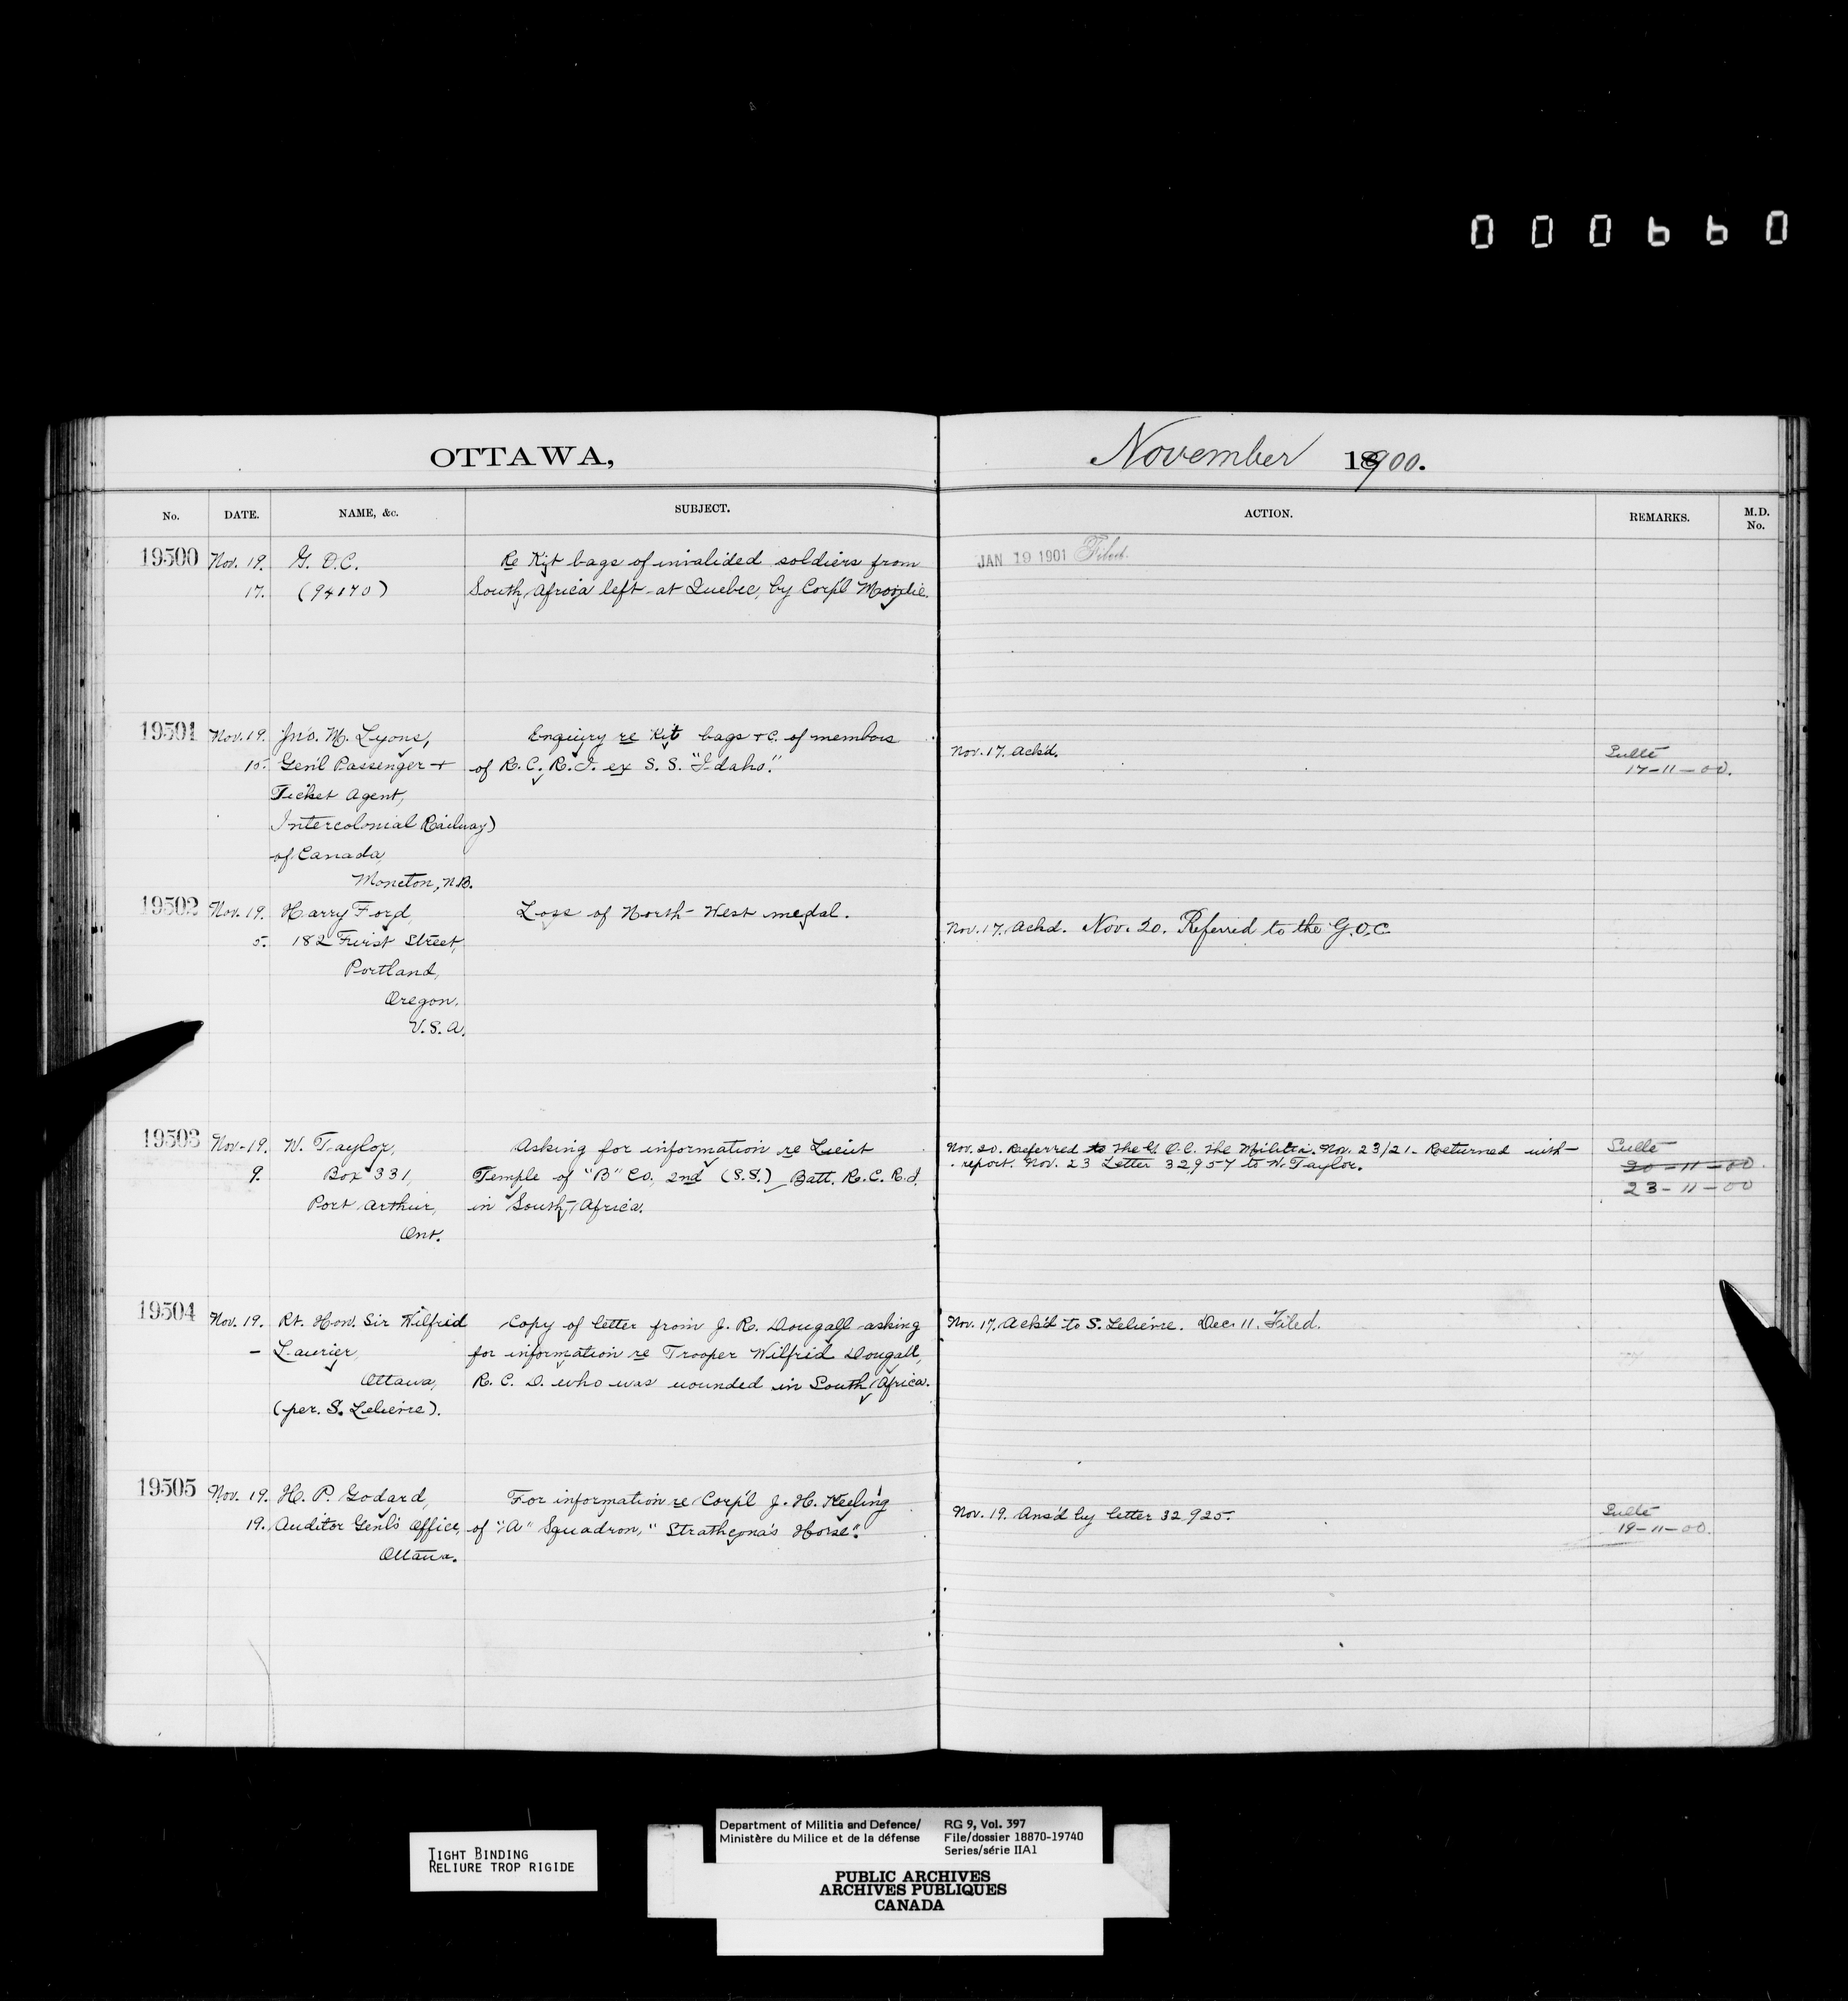 000660
OTTAWA,
November 1900.
No. DATE. NAME, &c. SUBJECT. ACTION. REMARKS. M.D. No.
19500 Nov. 19. G. O. C. Re Kit bags of invalided soldiers from JAN 19 1901 Filed.
17. (94170) South Africa left at Quebec, by Corp'l
19501 Nov. 19. Jno. M. Lyons, Enquiry re Kit bags &c. of members Nov. 17. Ack'd. Sulte
15. Gen'l Passenger + of R. C. R. I. ex S. S. "Idaho". 17-11-00.
Ticket Agent,
Intercolonial Railway)
of Canada,
Moncton, N.B.
19502 Nov. 19. Harry Ford, Loss of North-West medal. Nov. 17. Ackd. Nov. 20. Referred to the G.O.C.
5. 182 First Street,
Portland,
Oregon.
U.S.A.
19503 Nov. 19. W. Taylor, Asking for information re Lieut Nov. 20. Referred to the G. O. C. the Militia. Nov. 23/21. Returned with Sulte
9. Box 331, Temple of "B" Co., 2nd (S.S.) Batt. R. C. R. I. report. Nov. 23 Letter 32957 to W. Taylor. 20-11-00.
Port Arthur, in South Africa. 23-11-00
Ont.
19504 Nov. 19. Rt. Hon. Sir Wilfrid Copy of letter from J. R. Dougall asking Nov. 17. Ack'd to S. Lelievre. Dec. 11. Filed.
- Laurier, for information re Trooper Wilfrid Dougall,
Ottawa, R. C. D. who was wounded in South Africa.
(per. S. Lelievre).
19505 Nov. 19. H. P. Godard, For information re Corp'l J. H. Keeling Nov. 19. Ans'd by letter 32925. Sulte
19. Auditor Genl's Office, of "A" Squadron, "Strathcona's Horse". 19-11-00.
Ottawa.
TIGHT BINDING
RELIURE TROP RIGIDE
Department of Militia and Defence/ RG 9, Vol. 397
Ministère du Milice et de la défense File/dossier 18870-19740
Series/série IIA1
PUBLIC ARCHIVES
ARCHIVES PUBLIQUES
CANADA